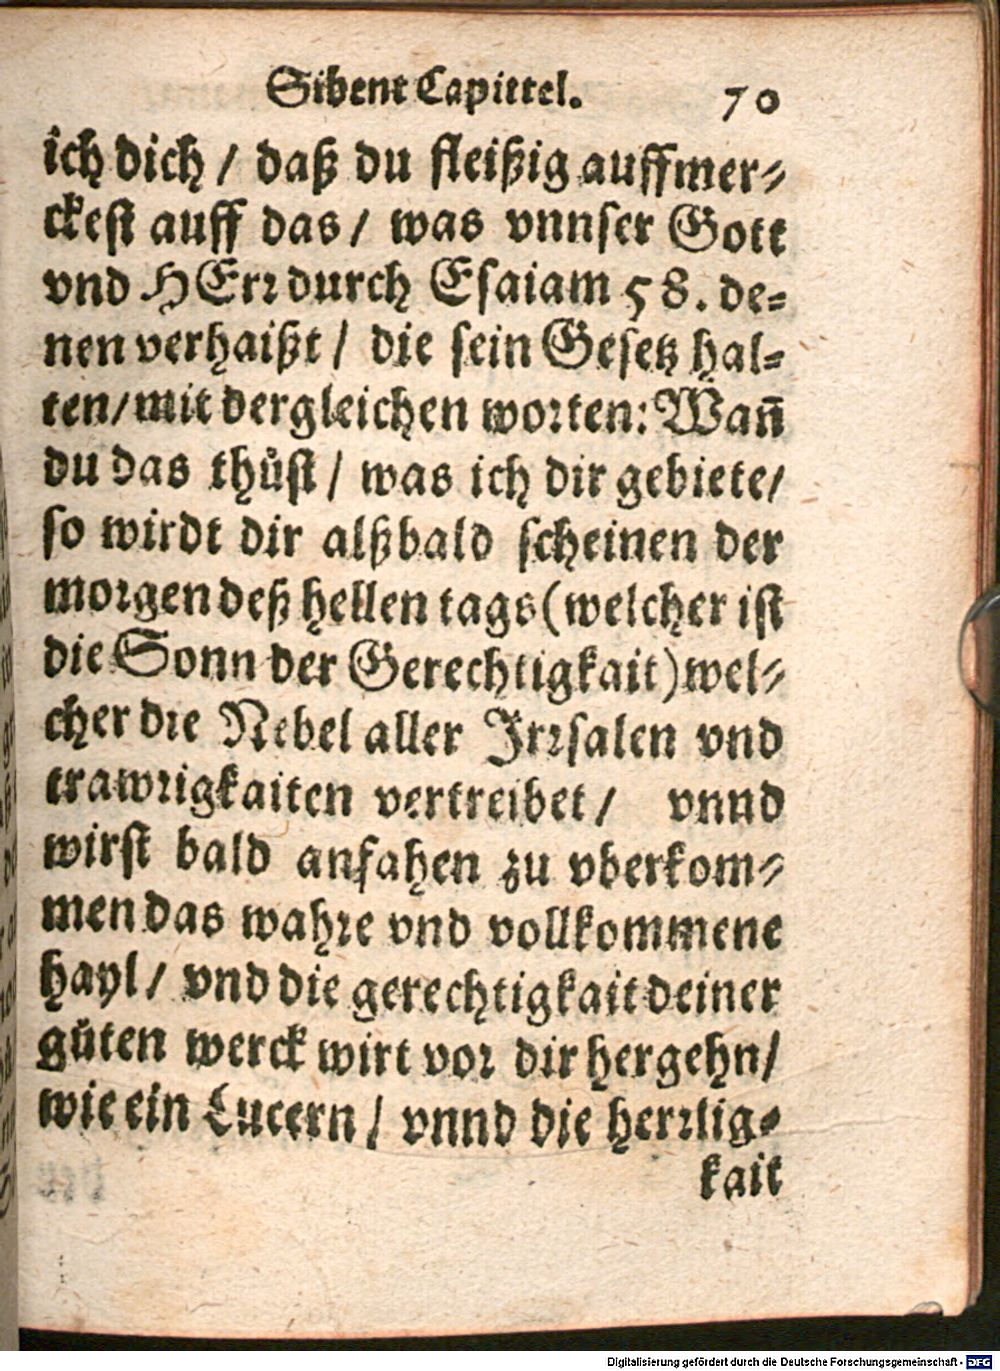 Sibent Capittel. 70
ich dich / daß du fleißig auffmer-
ckest auff das / was vnnser Gott
vnd HErr durch Esaiam 58. de-
nen verhaißt / die sein Gesetz hal-
ten / mit dergleichen worten: Wañ
du das thůst / was ich dir gebiete /
so wirdt dir alßbald scheinen der
morgen deß hellen tags (welcher ist
die Sonn der Gerechtigkait) wel-
cher die Nebel aller Irrsalen vnd
trawrigkaiten vertreibet / vnnd
wirst bald anfahen zu vberkom-
men das wahre vnd vollkommene
hayl / vnd die gerechtigkait deiner
gůten werck wirt vor dir hergehn /
wie ein Lucern / vnnd die herrlig-
kait
Digitalisierung gefördert durch die Deutsche Forschungsgemeinschaft - DFG